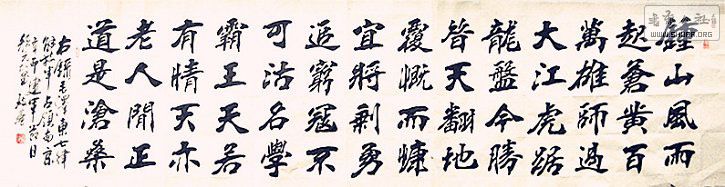 鍾山風雨
起蒼黃百
萬雄師過
大江虎踞
龍盤今勝
昔天翻地
覆慨而慷
宜將剩勇
追窮寇不
可沽名學
霸王天若
有情天亦
老人間正
道是滄桑
右錄毛澤東七律
解放軍占領南京
建軍節日